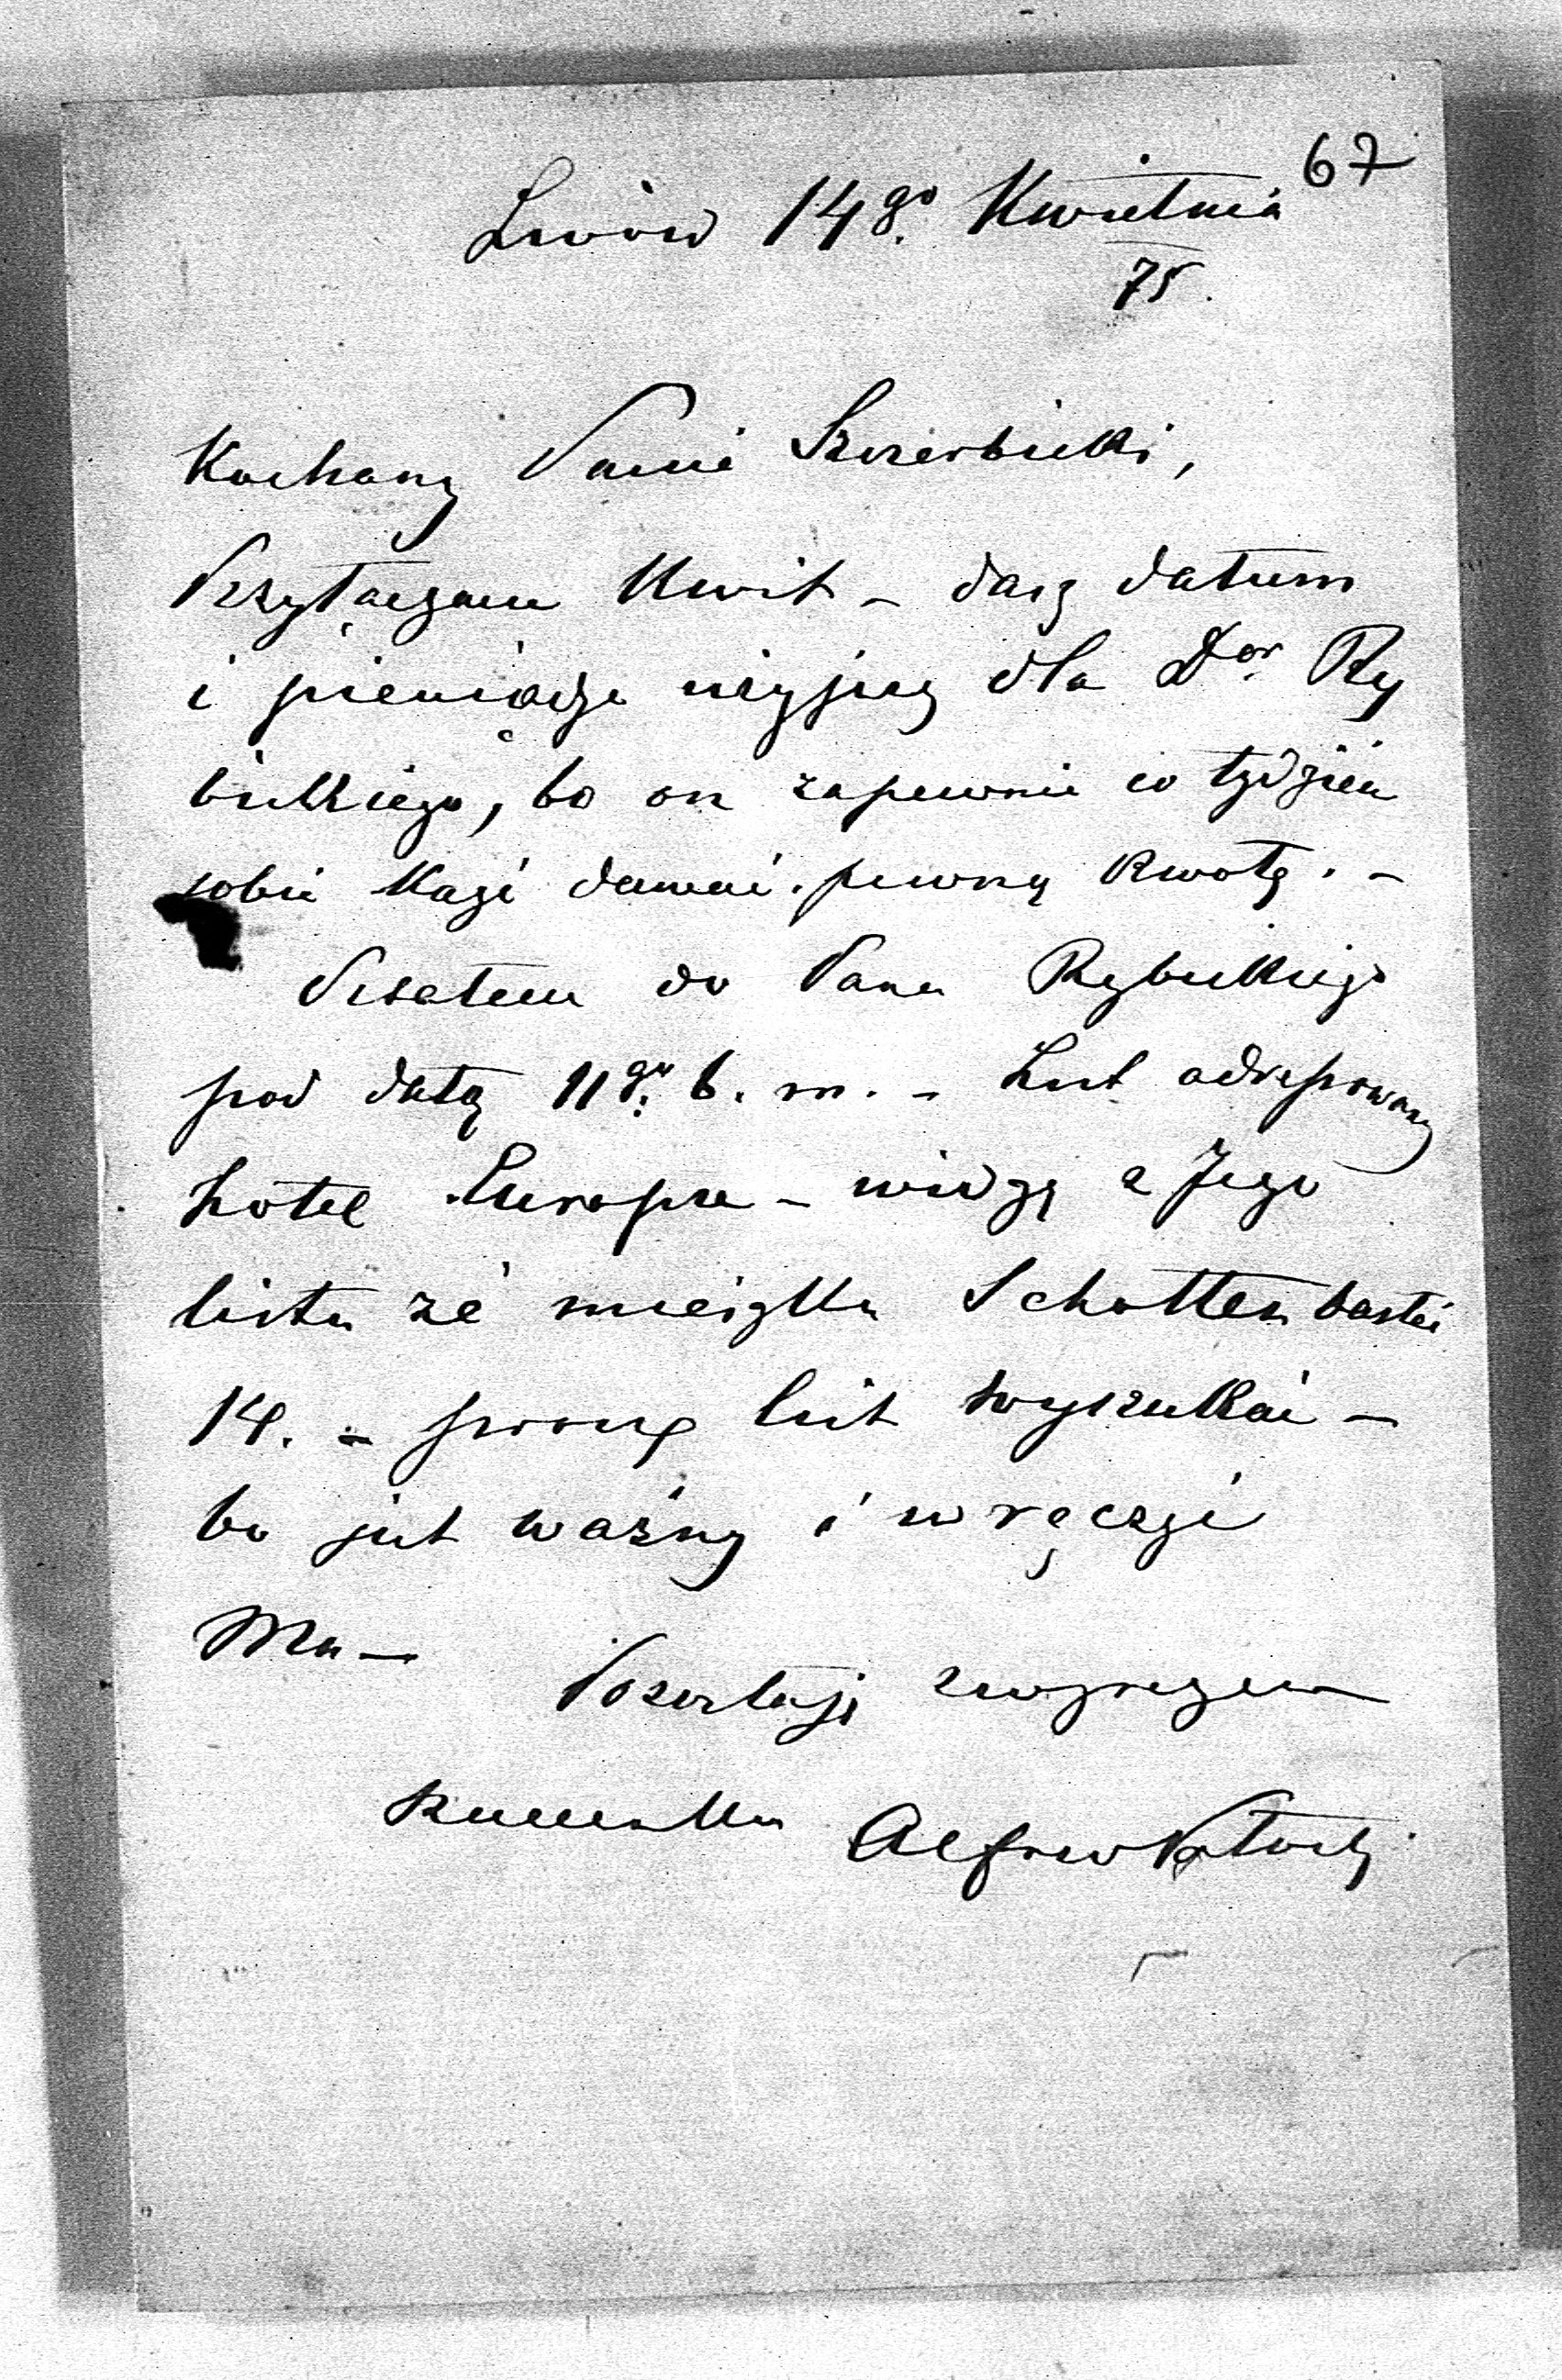 67
Lwów 14go. Kwietnia
75.
Kochany Panie Szczerbicki,
Przyłączam Kwit - daj datum
i pieniądze użyj dla Dor. Ry
bickiego, bo on zapewnie co tydzień
sobie każe dawać pewną kwotę. -
Pisałem do Pana Rybickiego
pod datą 11go. b. m. - List adresowany
hotel Europa - widzę z Jego
listu że mieszka Schottenbastei
14. - proszę list wyszukać -
bo jest ważny i wręczyć
Mu -
Pozostaję z
Alfred Potocki